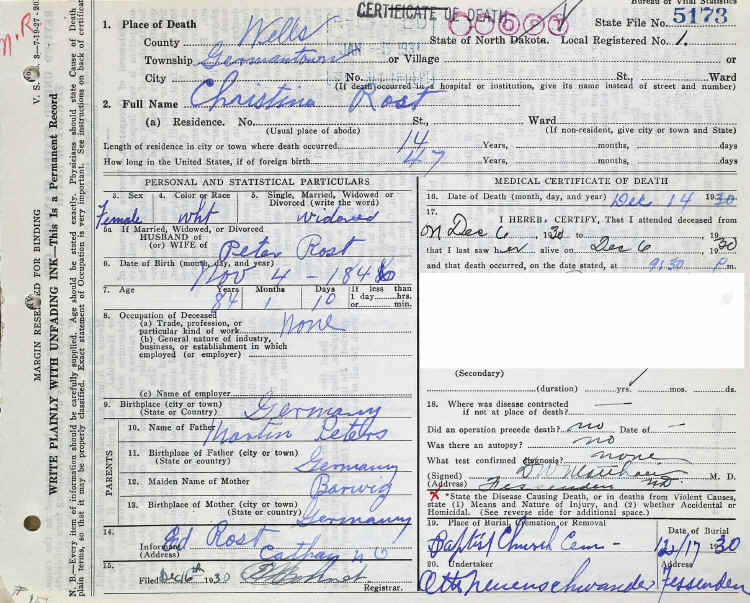 Bureau of Vital Statistics
CERTIFICATE OF DEATH
State File No. 5173
1. Place of Death
County Wells
State of North Dakota. Local Registered No. 1.
Township Germantown or Village
City No. St., Ward
(If death occurred in a hospital or institution, give its name instead of street and number)
2. Full Name Christina Rost
(a) Residence. No. St., Ward
(Usual place of abode) (If non-resident, give city or town and State)
Length of residence in city or town where death occurred 14 Years, months, days
How long in the United States, if of foreign birth 47 Years, months, days
PERSONAL AND STATISTICAL PARTICULARS
3. Sex 4. Color or Race 5. Single, Married, Widowed or
Divorced (write the word)
Female wht widowed
5a If Married, Widowed, or Divorced
HUSBAND of
(or) WIFE of Peter Rost
6. Date of Birth (month, day, and year)
Nov 4 - 184
7. Age Years Months Days If less than
1 day hrs.
or min.
84 1 10
8. Occupation of Deceased
(a) Trade, profession, or
particular kind of work None
(b) General nature of industry,
business, or establishment in which
employed (or employer)
(c) Name of employer
9. Birthplace (city or town)
(State or Country) Germany
PARENTS
10. Name of Father Martin Peters
11. Birthplace of Father (city or town)
(State or country) Germany
12. Maiden Name of Mother Barwig
13. Birthplace of Mother (city or town)
(State or Country) Germany
14.
Informant Ed Rost
(Address) Cathay N D
15.
Filed Dec 16th 1930
Registrar.
MEDICAL CERTIFICATE OF DEATH
16. Date of Death (month, day, and year) Dec 14 1930
17.
I HEREBY CERTIFY, That I attended deceased from
on Dec 6, 1930 to 19
that I last saw her alive on Dec 6 1930
and that death occurred, on the date stated, at 9:30 P m.
(Secondary)
(duration) yrs. mos. ds.
18. Where was disease contracted
if not at place of death?
Did an operation precede death? no Date of -
Was there an autopsy? no
What test confirmed diagnosis? none
(Signed) M. D.
(Address) Fessenden ND
X *State the Disease Causing Death, or in deaths from Violent Causes,
state (1) Means and Nature of Injury, and (2) whether Accidental or
Homicidal. (See reverse side for additional space.)
19. Place of Burial, Cremation or Removal Date of Burial
Baptist Church Cem - 12/17 1930
20. Undertaker Address
Otto Neuenschwander Fessenden
MARGIN RESERVED FOR BINDING
WRITE PLAINLY WITH UNFADING INK—This Is a Permanent Record
N. B.—Every item of information should be carefully supplied. Age should be stated exactly. Physicians should state Cause of Death in
plain terms, so that it may be properly classified. Exact statement of Occupation is very important. See instructions on back of certificate